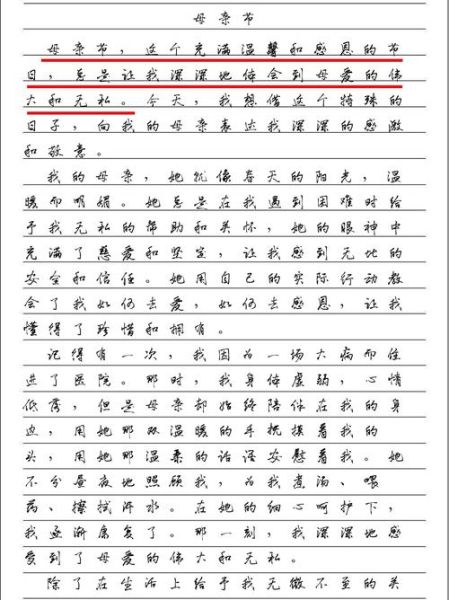 母亲节
母亲节，这个充满温馨和感恩的节
日，总是让我深深地体会到母爱的伟
大和无私。今天，我想借这个特殊的
日子，向我的母亲表达我深深的感激
和敬意。
我的母亲，她就像春天的阳光，温
暖而明媚。她总是在我遇到困难时给
予我无私的帮助和关怀，她的眼神中
充满了慈爱和坚定，让我感到无比的
安全和信任。她用自己的实际行动教
会了我如何去爱，如何去感恩，让我
懂得了珍惜和拥有。
记得有一次，我因为一场大病而住
进了医院。那时，我身体虚弱，心情
低落，但是母亲却始终陪伴在我的身
边，用她那双温暖的手抚摸着我的
头，用她那温柔的话语安慰着我。她
不分昼夜地照顾我，为我煮汤、喂
药、擦拭汗水。在她的细心呵护下，
我逐渐康复了。那一刻，我深深地感
受到了母爱的伟大和无私。
除了在生活上给予我无微不至的关